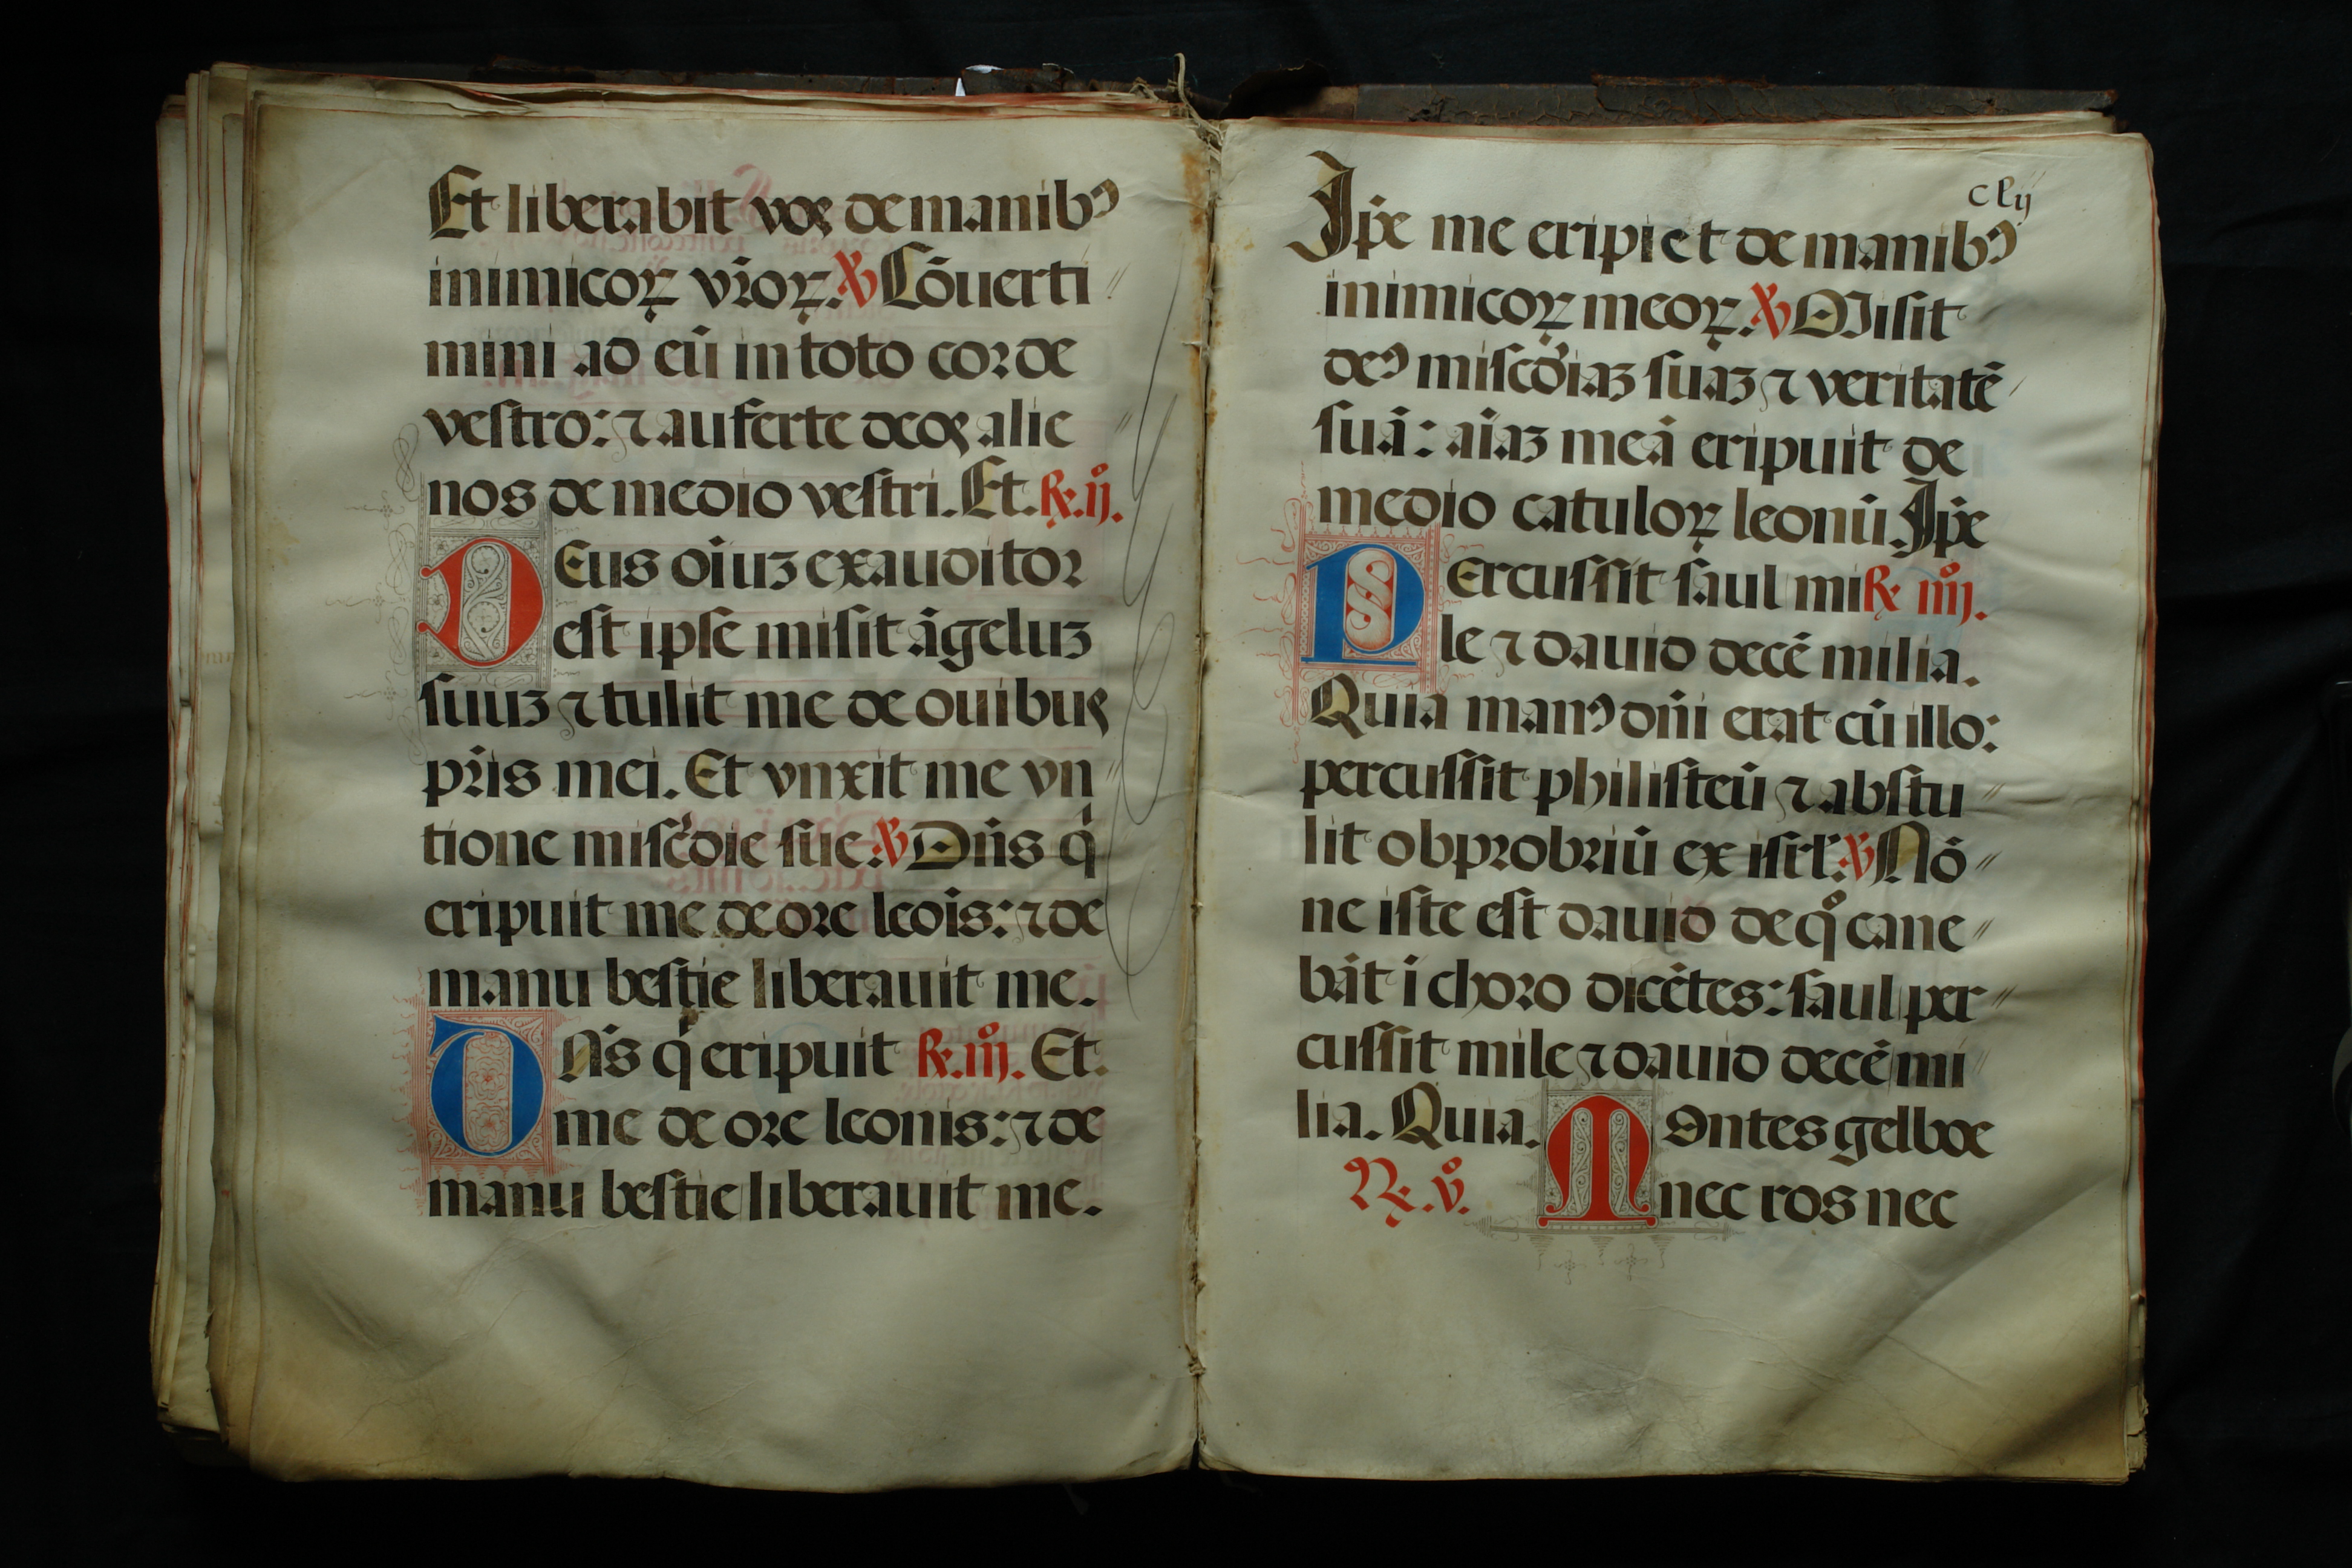 Et liberabit vos de manibꝰ
inimicoꝝ vr̄oꝝ. ℣ Cōuerti
mini ad eū in toto corde
vestro: ⁊ auferte deos alie
nos de medio vestri. Et. ℟. ij.
DEus oīuꝫ exauditor
est ipse misit āgeluꝫ
suuꝫ ⁊ tulit me de ouibus
pr̄is mei. Et vnxit me vn
tione miscd̄ie sue. ℣ Dn̄s q̄
eripuit me de ore leōis: ⁊ de
manu bestie liberauit me.
DN̄s q̄ eripuit ℟. iijº. Et.
me de ore leonis: ⁊ de
manu bestie liberauit me.
clij
Ip̄e me eripiet de manibꝰ
inimicoꝝ meoꝝ. ℣ Misit
deꝰ miscd̄iaꝫ suaꝫ ⁊ veritatē
suā: aīaꝫ meā eripuit de
medio catuloꝝ leonū. Ip̄e
PErcussit saul mi ℟ iiijº.
le ⁊ dauid decē milia.
Quia manꝰ dn̄i erat cū illo:
percussit philisteū ⁊ abstu
lit obprobriū ex isrl̄. ℣ Nō
ne iste est dauid de qº cane
bāt ī choro dicētes: saul per
cussit mile ⁊ dauid decē mi
lia. Quia. MOntes gelboe
℟. vº. nec ros nec